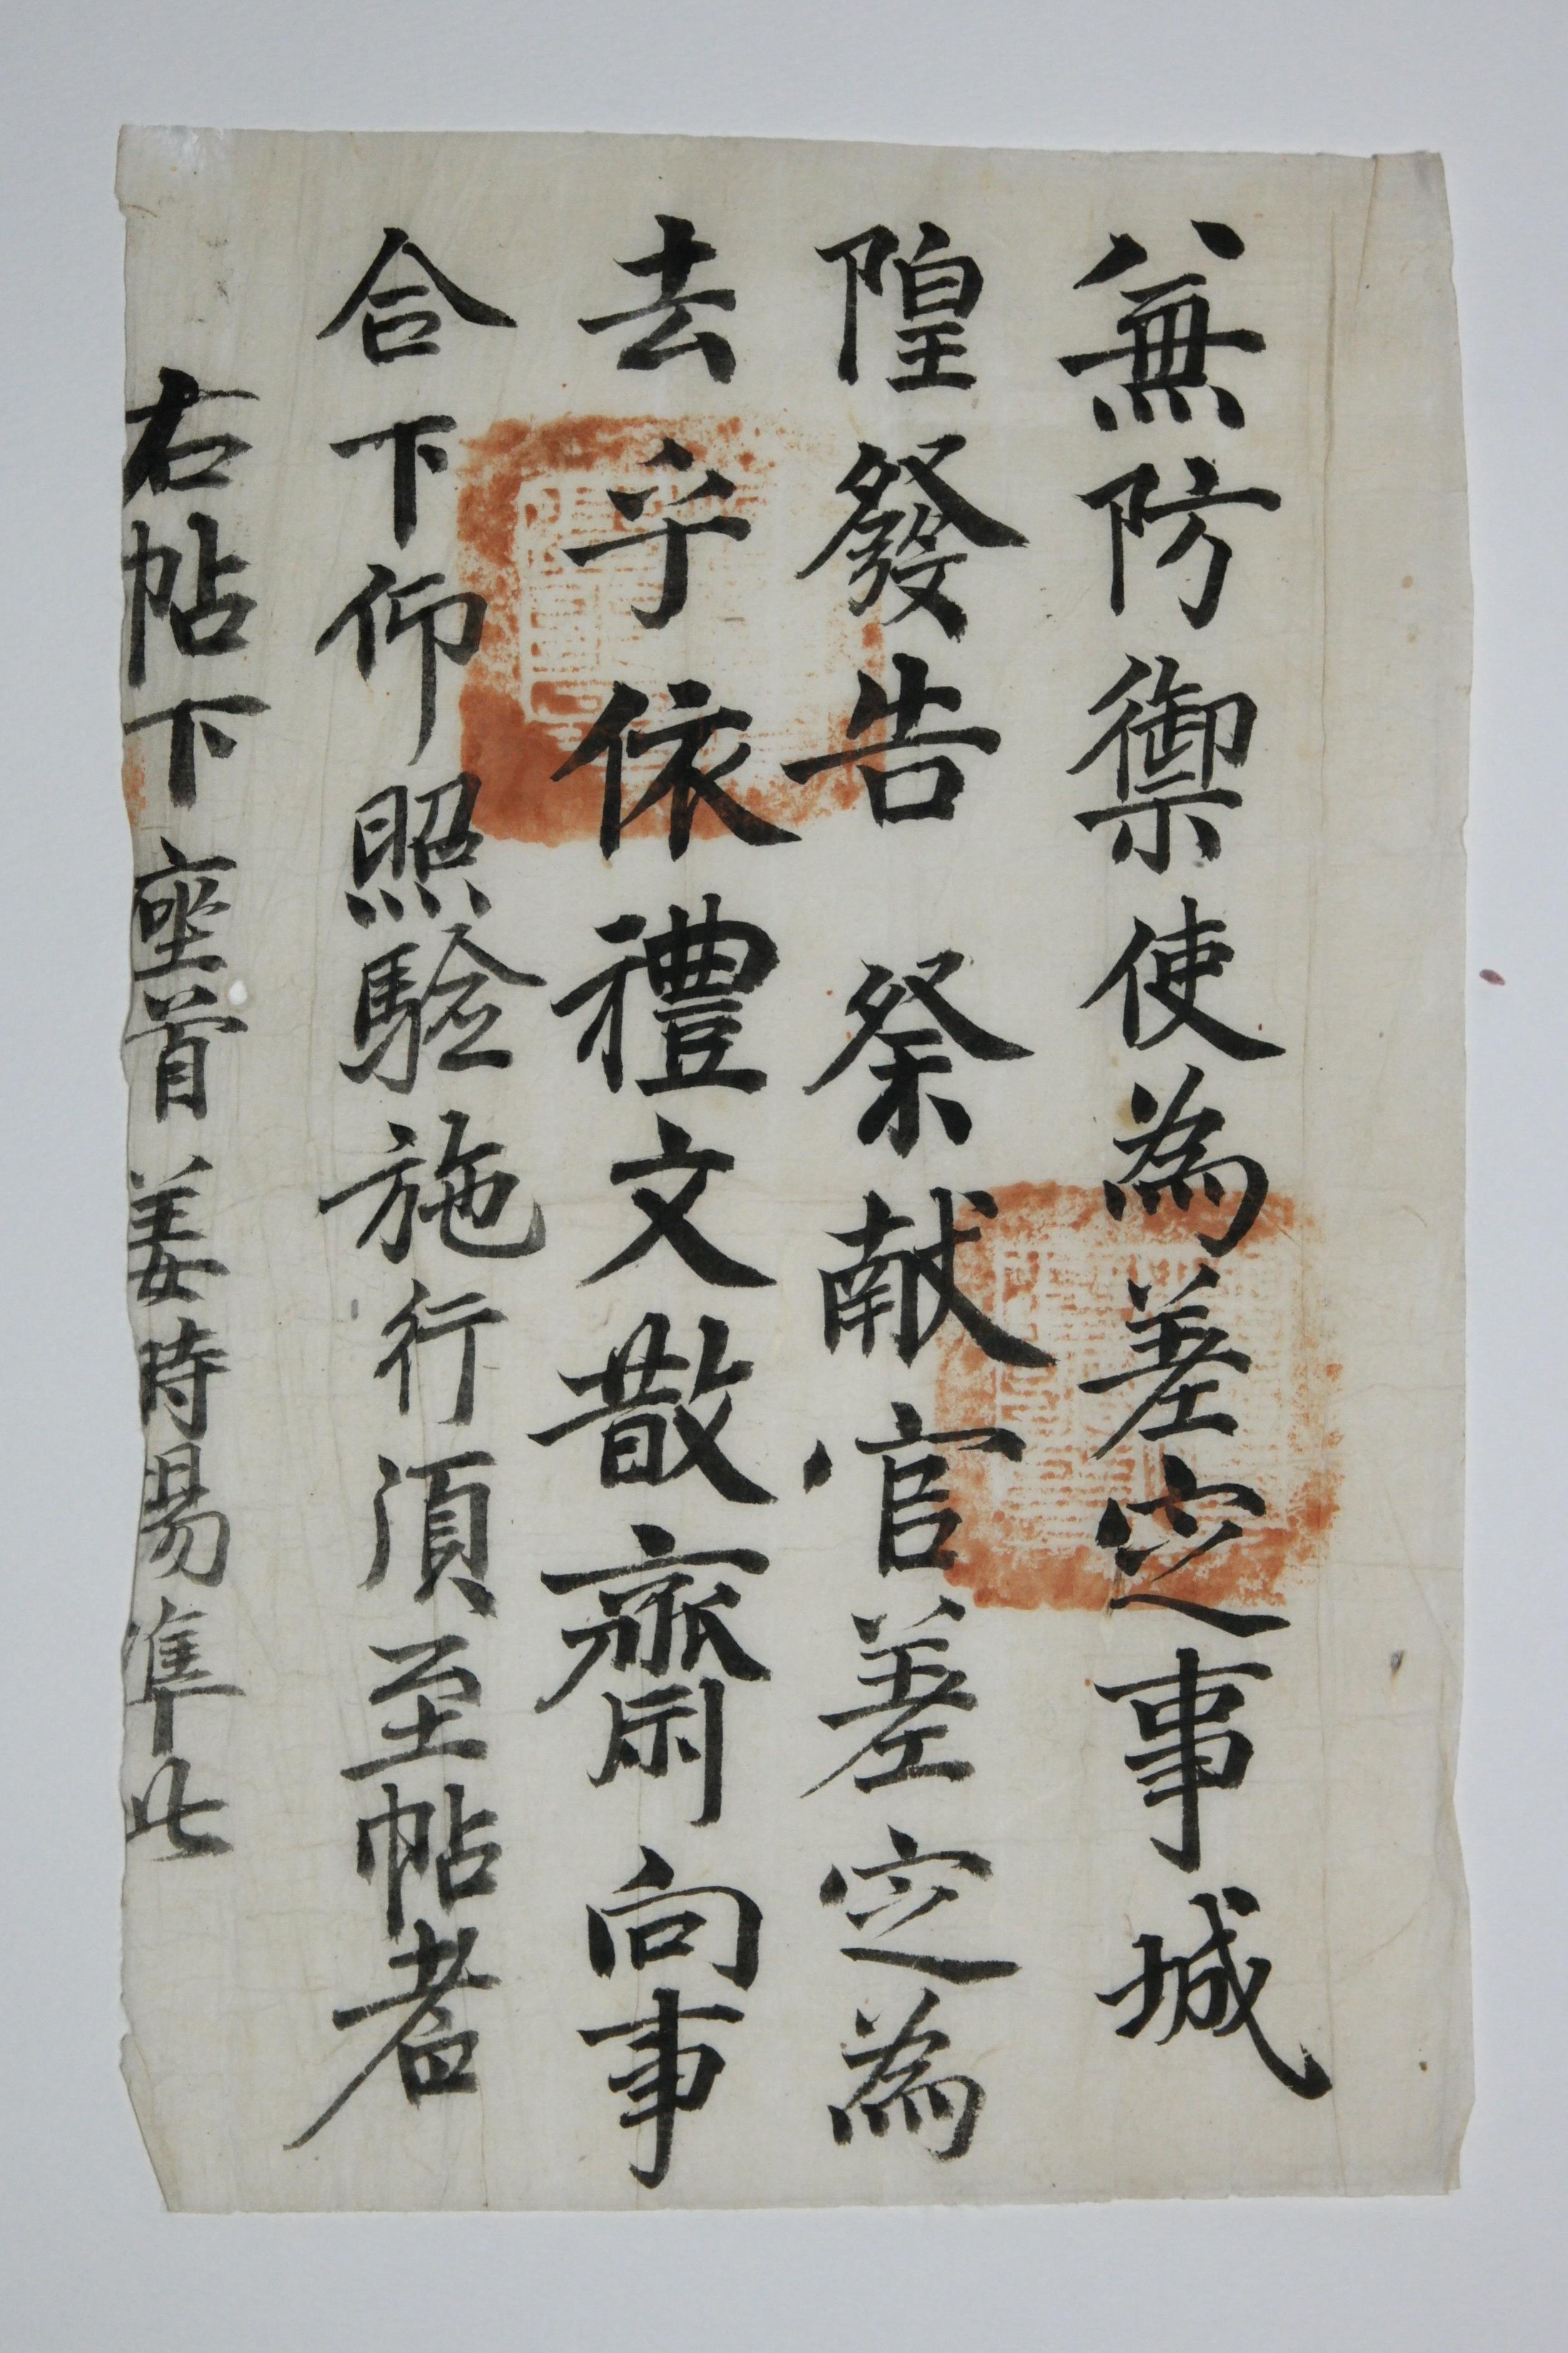 兼防禦使為差定事城
隍發告祭献官差定為
去乎依禮文散齋向事
合下仰照驗施行湏至帖者
右帖下座首姜時昜準此